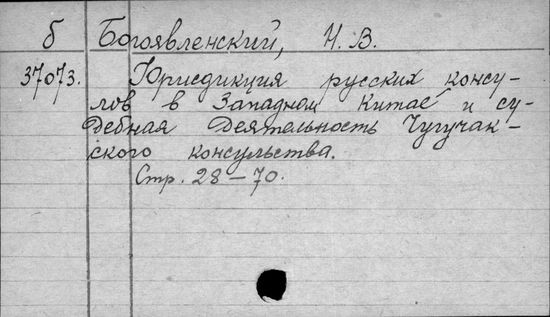 б Богоявленский, Н. В.
37073. Юрисдикция русских консу-
лов в Западном Китае и су-
дебная деятельность Чугучак-
ского консульства.
Стр. 28-70.